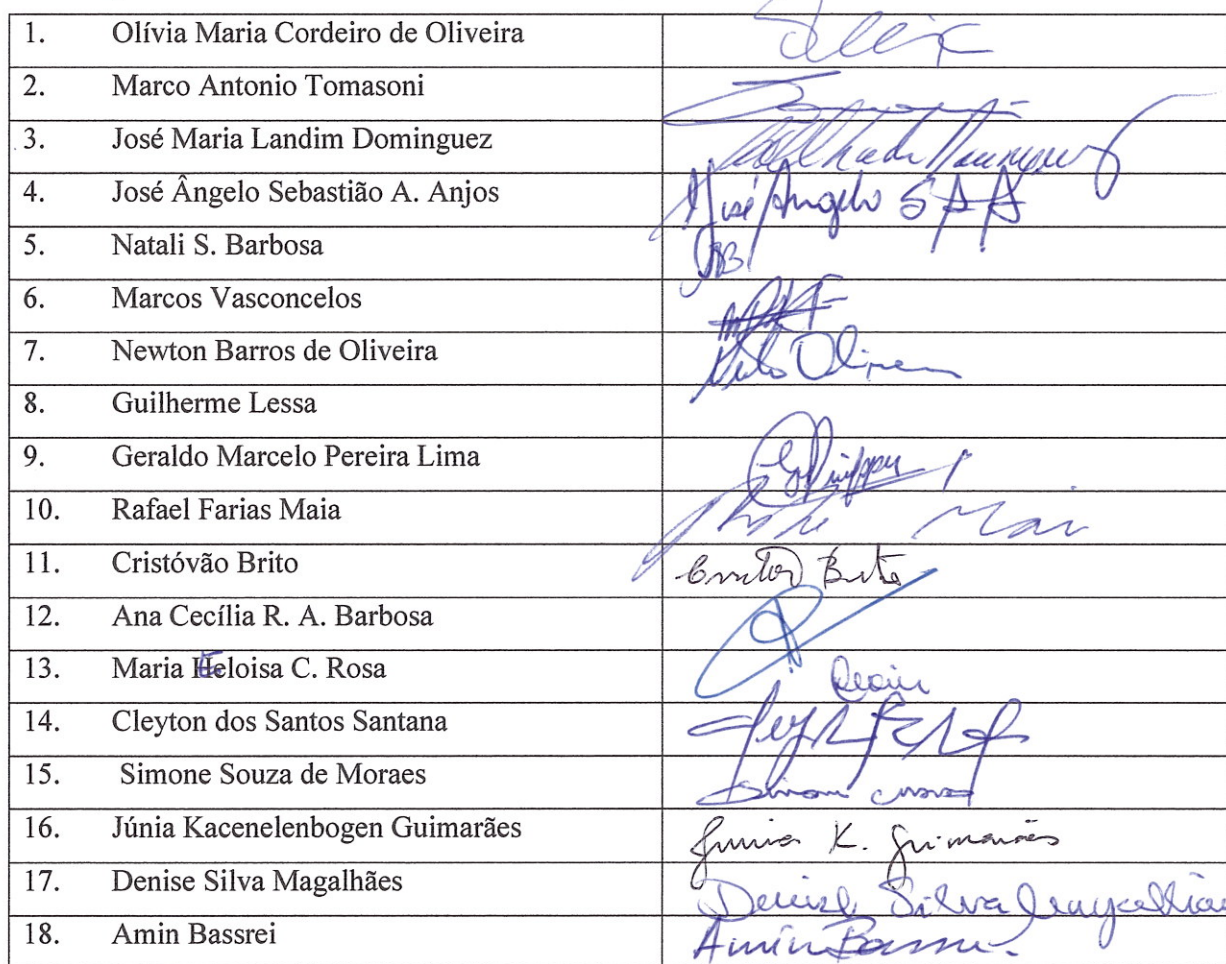 1. Olívia Maria Cordeiro de Oliveira
2. Marco Antonio Tomasoni
3. José Maria Landim Dominguez
4. José Ângelo Sebastião A. Anjos José Angelo S A A
5. Natali S. Barbosa
6. Marcos Vasconcelos
7. Newton Barros de Oliveira Oliveira
8. Guilherme Lessa
9. Geraldo Marcelo Pereira Lima
10. Rafael Farias Maia
11. Cristóvão Brito Brito
12. Ana Cecília R. A. Barbosa
13. Maria Eloisa C. Rosa
14. Cleyton dos Santos Santana
15. Simone Souza de Moraes
16. Júnia Kacenelenbogen Guimarães Junia K. Guimarães
17. Denise Silva Magalhães Denise Silva Magalhães
18. Amin Bassrei Amin Bassrei